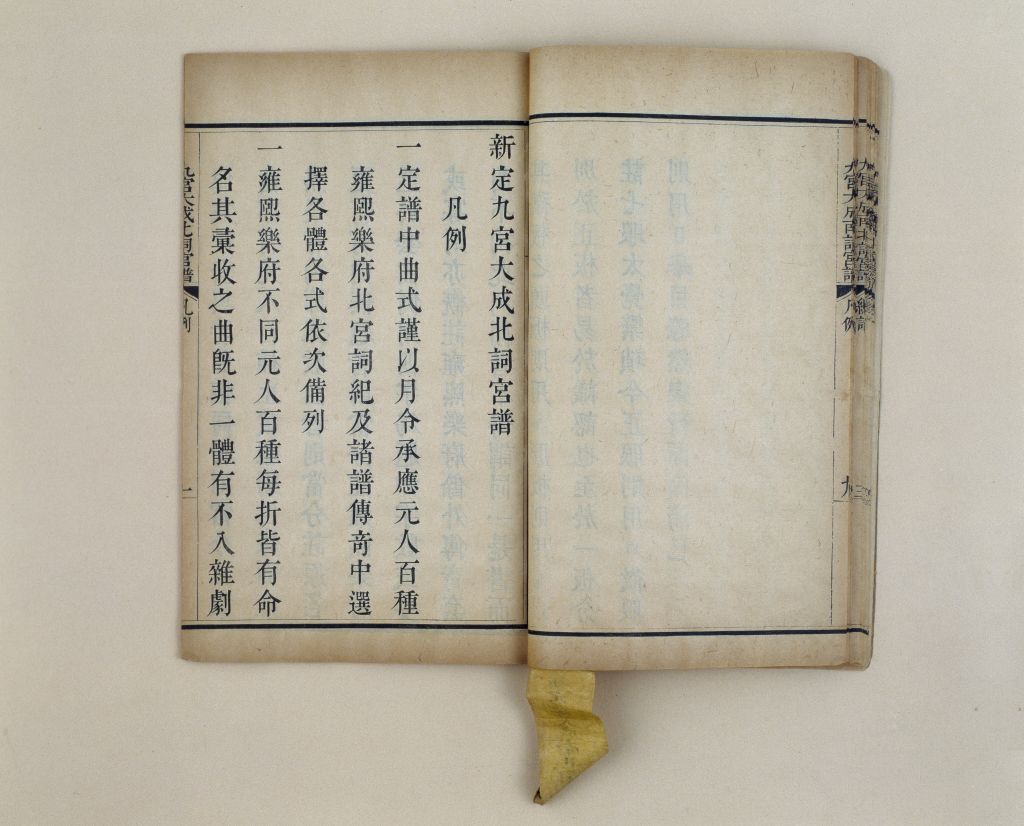 新定九宮大成北詞宮譜
凡例
一定譜中曲式謹以月令承應元人百種
雍熙樂府北宮詞紀及諸譜傳奇中選
擇各體各式依次備列
一雍熙樂府不同元人百種每折皆有命
名其彙收之曲旣非一體有不入雜劇
九宮大成北詞宮譜
凡例
一